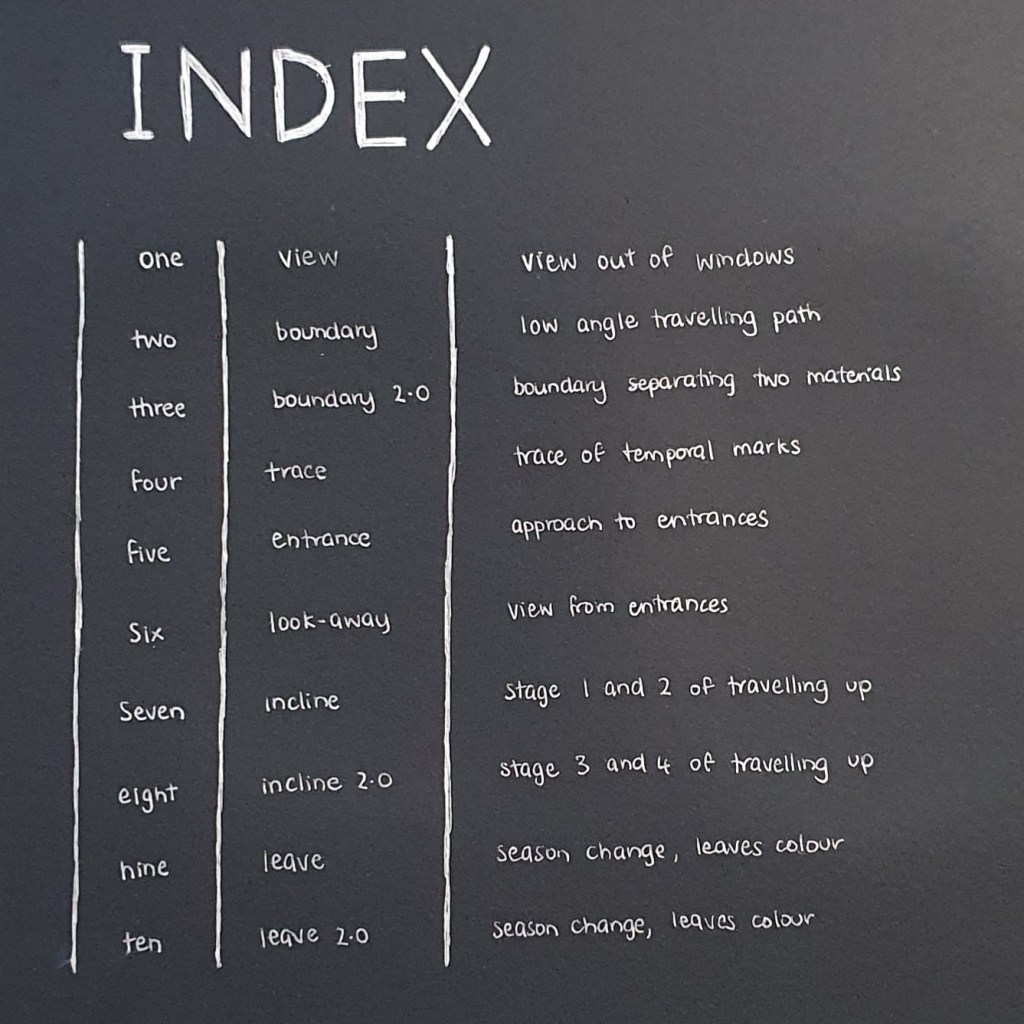 INDEX
one view view out of windows
two boundary low angle travelling path
three boundary 2.0 boundary separating two materials
four trace trace of temporal marks
five entrance approach to entrances
Six look-away view from entrances
Seven incline stage 1 and 2 of travelling up
eight incline 2.0 stage 3 and 4 of travelling up
nine leave season change, leaves colour
ten leave 2.0 season change, leaves colour